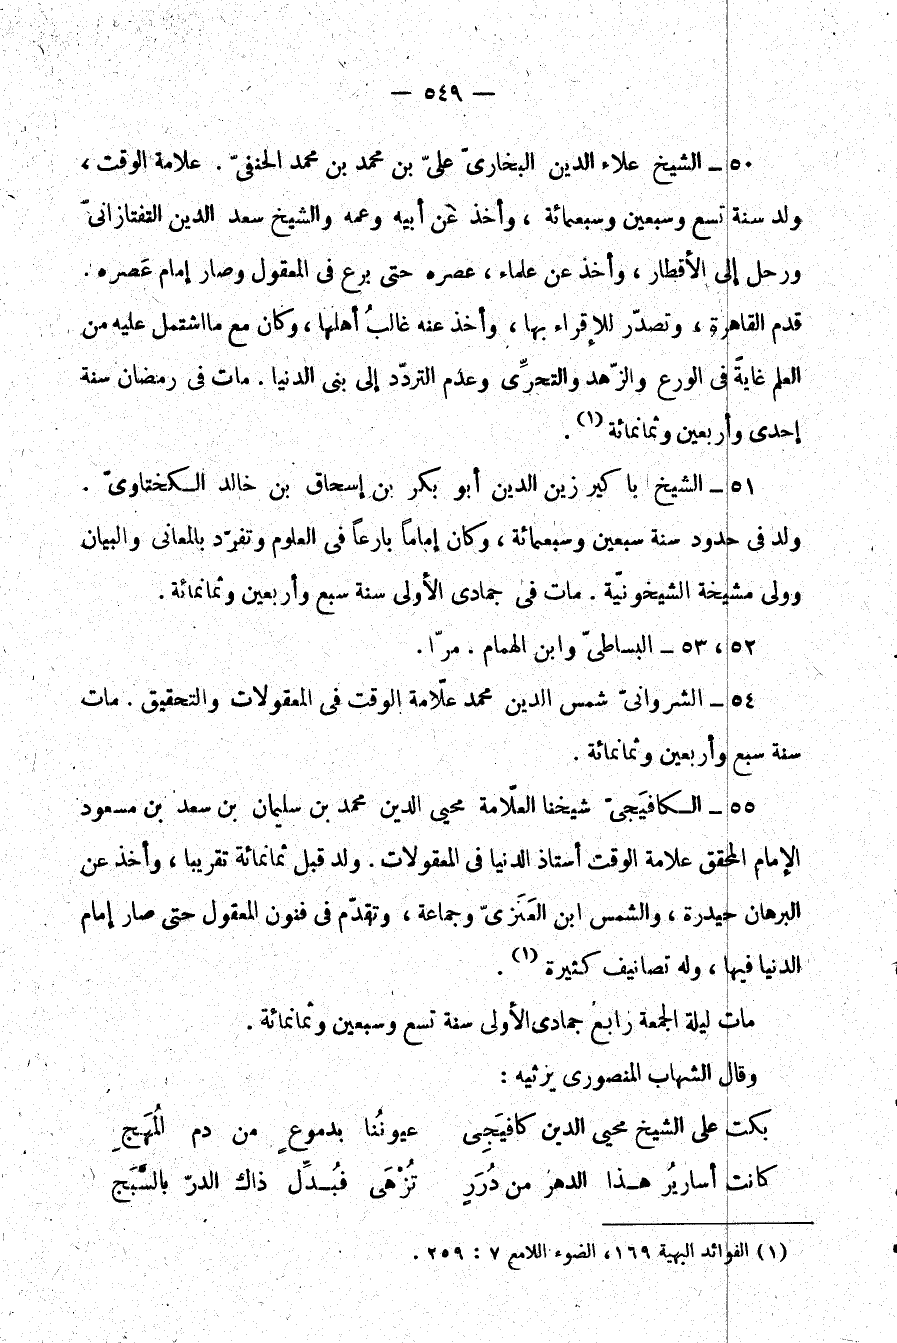 — ٥٤٩ —
٥٠ ــ الشيخ علاء الدين البخارىّ علىّ بن محمد بن محمد الحنفىّ . علامة الوقت ،
ولد سنة تسع وسبعين وسبعمائة ، وأخذ عن أبيه وعمه والشيخ سعد الدين التفتازانىّ
ورحل إلى الأقطار ، وأخذ عن علماء ، عصره حتى برع فى المعقول وصار إمام عَصره .
قدم القاهرة ، وتصدّر للإقراء بها ، وأخذ عنه غالبُ أهلها ، وكان مع مااشتمل عليه من
العلم غايةً فى الورع والزّهد والتحرِّى وعدم التردّد إلى بنى الدنيا . مات فى رمضان سنة
إحدى وأربعين وثمانمائة (١) .
٥١ ــ الشيخ با كير زين الدين أبو بكر بن إسحاق بن خالد الـكختاوىّ .
ولد فى حدود سنة سبعين وسبعمائة ، وكان إماماً بارعاً فى العلوم وتفرّد بالمعانى والبيان
وولى مشيخة الشيخونيّة . مات فى جمادى الأولى سنة سبع وأربعين وثمانمائة .
٥٢ ، ٥٣ ــ البساطىّ وابن الهمام . مرّا .
٥٤ ــ الشروانىّ شمس الدين محمد علّامة الوقت فى المعقولات والتحقيق . مات
سنة سبع وأربعين وثمانمائة .
٥٥ ــ الـكافيَجىّ شيخنا العلّامة محيى الدين محمد بن سليمان بن سعد بن مسعود
الإمام المحقق علامة الوقت أستاذ الدنيا فى المعقولات . ولد قبل ثمانمائة تقريبا ، وأخذ عن
البرهان حيدرة ، والشمس ابن الفَنَرىّ وجماعة ، وتقدّم فى فنون المعقول حتى صار إمام
الدنيا فيها ، وله تصانيف كثيرة (١) .
مات ليلة الجمعة رابع جمادى الأولى سنة تسع وسبعين وثمانمائة .
وقال الشهاب المنصورى يرثيه :
بكت على الشيخ محيى الدين كافيَجِى عيونُنا بدموعٍ من دم المُهَجِ
كانت أساريرُ هـذا الدهر من دُرَرٍ تُزْهَى فبُـدِّل ذاك الدرّ بالسَّبَجِ
(١) الفوائد البهية ١٦٩ ، الضوء اللامع ٧ : ٢٥٩ .